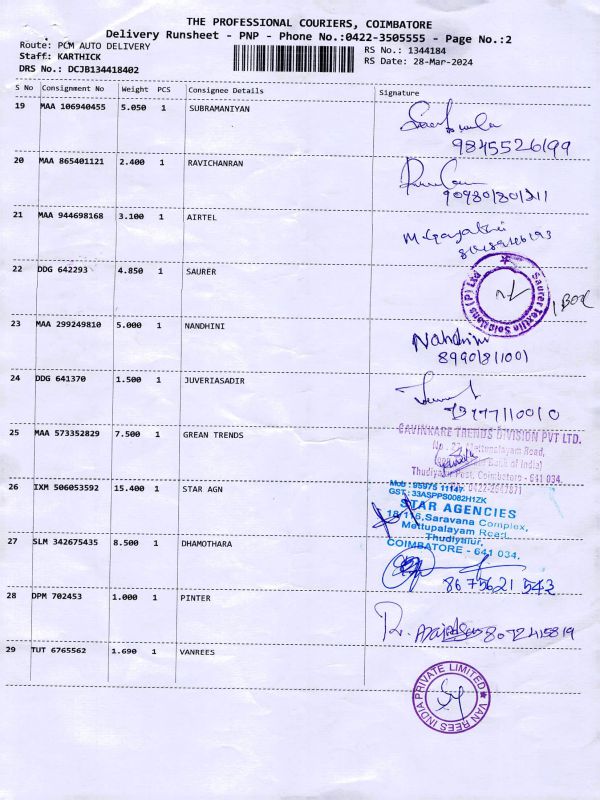 THE PROFESSIONAL COURIERS, COIMBATORE
Delivery Runsheet - PNP - Phone No.:0422-3505555 - Page No.:2
Route: PCM AUTO DELIVERY RS No.: 1344184
Staff: KARTHICK RS Date: 28-Mar-2024
DRS No.: DCJB134418402
S No Consignment No Weight PCS Consignee Details Signature
19 MAA 106940455 5.050 1 SUBRAMANIYAN
9845526199
20 MAA 865401121 2.400 1 RAVICHANRAN
21 MAA 944698168 3.100 1 AIRTEL
M. Gayathri
22 DDG 642293 4.850 1 SAURER
Saurer Textile Solutions (P) Ltd
1 Box
23 MAA 299249810 5.000 1 NANDHINI
Nandhini
24 DDG 641370 1.500 1 JUVERIASADIR
25 MAA 573352829 7.500 1 GREAN TRENDS
CAVINKARE TRENDS DIVISION PVT LTD.
Mettupalayam Road,
Bank of India)
Thudiyalur Post, Coimbatore - 641 034.
26 IXM 506053592 15.400 1 STAR AGN
GST: 33ASPPS0082H1ZK
STAR AGENCIES
Saravana Complex,
Mettupalayam Road,
Thudiyalur,
COIMBATORE - 641 034.
27 SLM 342675435 8.500 1 DHAMOTHARA
8675621543
28 DPM 702453 1.000 1 PINTER
8072415819
29 TUT 6765562 1.690 1 VANREES
VAN REES INDIA PRIVATE LIMITED